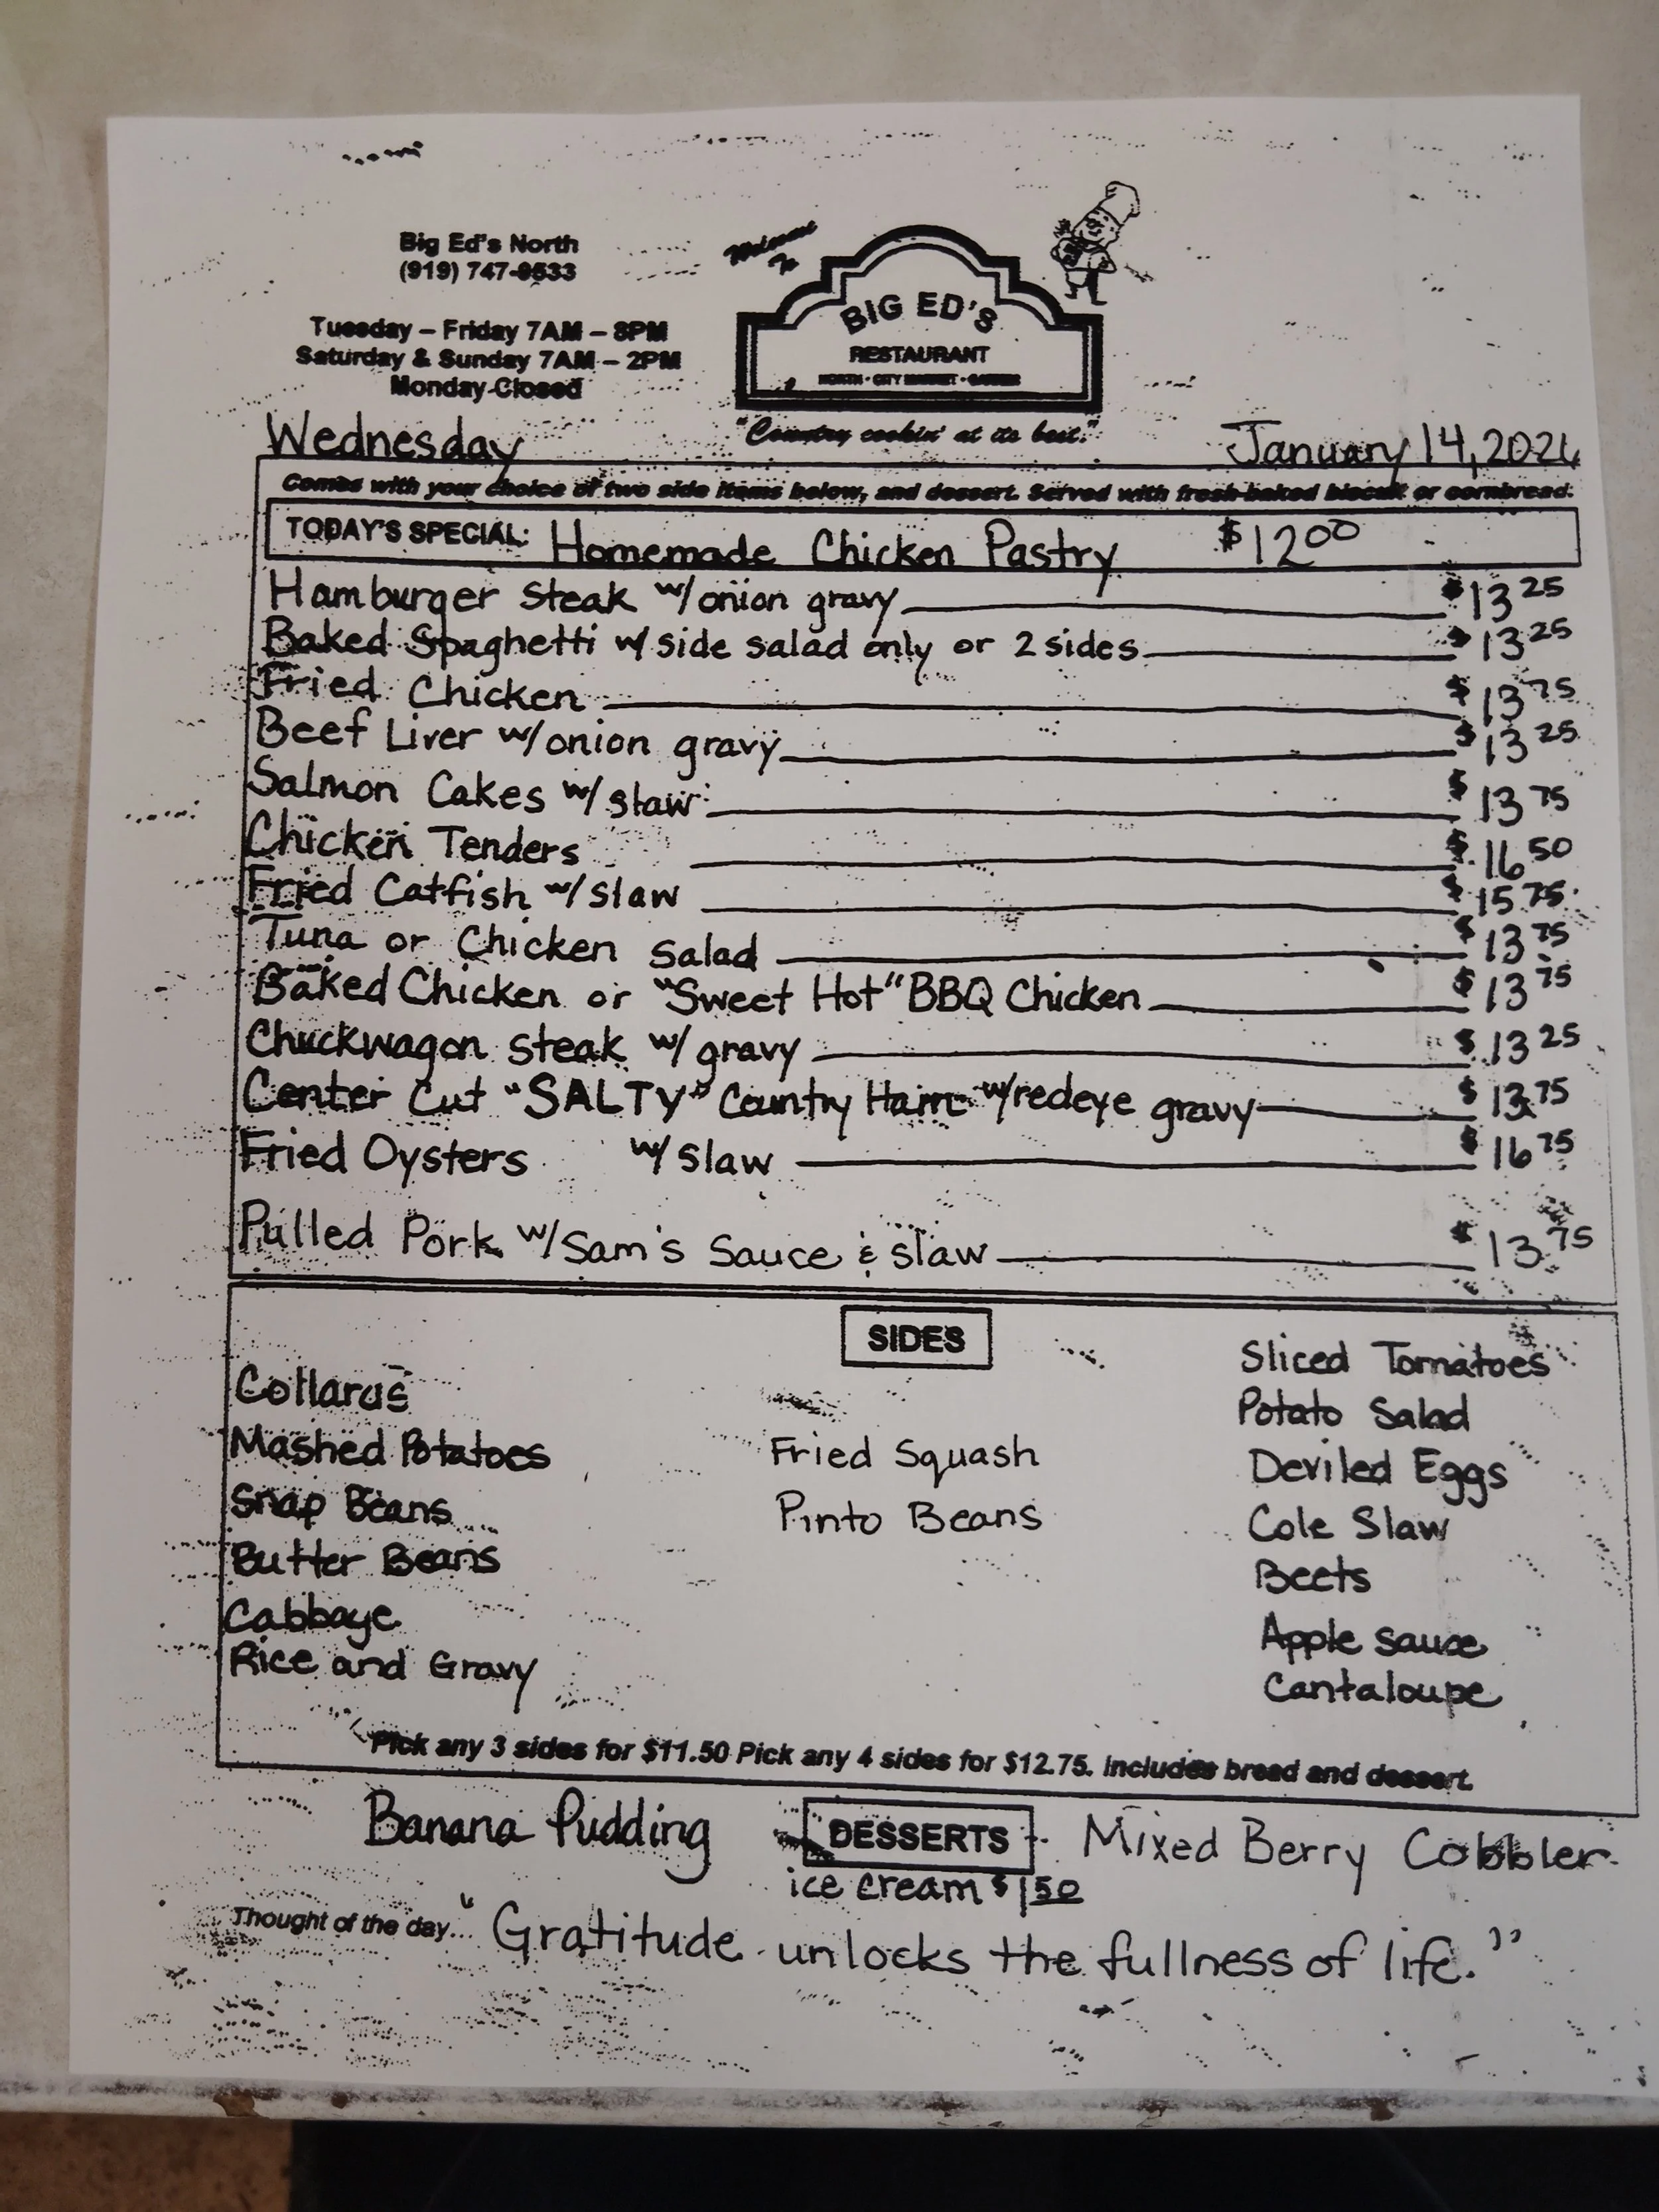 Big Ed's North
(919) 747-9533
Tuesday – Friday 7AM – 8PM
Saturday & Sunday 7AM – 2PM
Monday Closed
Welcome
To
BIG ED'S
RESTAURANT
NORTH · CITY MARKET · GARNER
"Country cookin' at its best."
Wednesday January 14, 2026
Comes with your choice of two side items below, and dessert. Served with fresh-baked biscuit or cornbread.
TODAY'S SPECIAL: Homemade Chicken Pastry $12 00
Hamburger Steak w/onion gravy $13 25
Baked Spaghetti w/ side salad only or 2 sides $13 25
Fried Chicken $13 75
Beef Liver w/onion gravy $13 25
Salmon Cakes w/ slaw $13 75
Chicken Tenders $16 50
Fried Catfish w/ Slaw $15 75
Tuna or Chicken Salad $13 75
Baked Chicken or "Sweet Hot" BBQ Chicken $13 75
Chuckwagon steak w/ gravy $13 25
Center Cut "SALTY" Country Ham w/redeye gravy $13 75
Fried Oysters w/ Slaw $16 75
Pulled Pork w/ Sam's Sauce & slaw $13 75
SIDES
Collards
Mashed Potatoes
Snap Beans
Butter Beans
Cabbage
Rice and Gravy
Fried Squash
Pinto Beans
Sliced Tomatoes
Potato Salad
Deviled Eggs
Cole Slaw
Beets
Apple sauce
Cantaloupe
Pick any 3 sides for $11.50 Pick any 4 sides for $12.75. Includes bread and dessert.
Banana Pudding DESSERTS Mixed Berry Cobbler
ice cream $1 50
Thought of the day... "Gratitude unlocks the fullness of life."